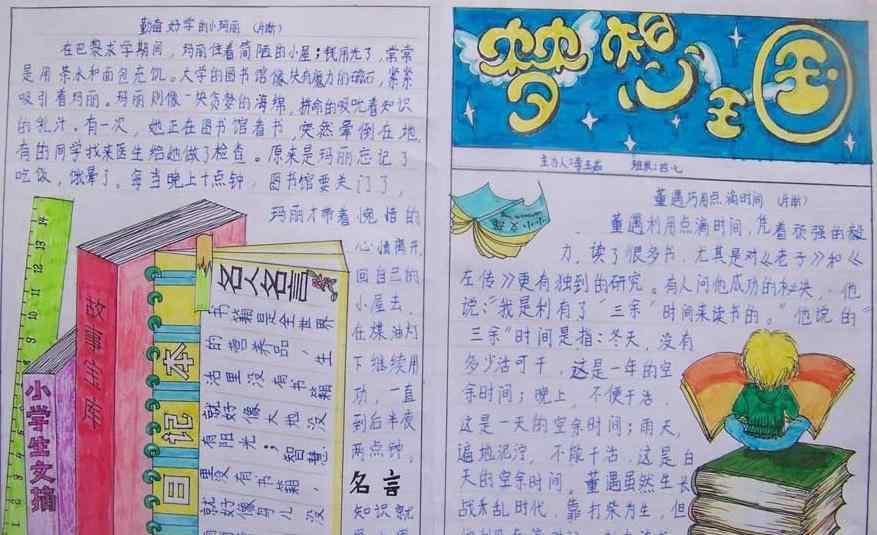 勤奋好学的小玛丽 (片断)
在巴黎求学期间，玛丽住着简陋的小屋；钱用光了，常常
是用茶水和面包充饥。大学的图书馆像块有魔力的磁石，紧紧
吸引着玛丽。玛丽则像一块贪婪的海绵，拼命的吸吮着知识
的乳汁。有一次，她正在图书馆看书，突然晕倒在地，
有的同学找来医生给她做了检查。原来是玛丽忘记了
吃饭，饿晕了。每当晚上十点钟，图书馆要关门了，
玛丽才带着惋惜的
心情离开，
回自己的
小屋去，
在煤油灯
下继续用
功，一直
到后半夜
两点钟。
名言
知识就
故事宝库
小学生文摘
日记本
名人名言
书籍是全世界
的营养品，生
活里没有书籍
就好像大地没
有阳光；智慧
里没有书籍，
就好像鸟儿没
梦想王国
主办人：李玉茹 班级：四.七
董遇巧用点滴时间 (片断)
董遇利用点滴时间，凭着顽强的毅
力，读了很多书，尤其是对《老子》和《
左传》更有独到的研究。有人问他成功的秘诀，他
说："我是利有了"三余"时间来读书的。"他说的"
三余"时间是指：冬天，没有
多少活可干，这是一年的空
余时间；晚上，不便干活，
这是一天的空余时间；雨天，
遍地泥泞，不能干活，这是白
天的空余时间。董遇虽然生长
战乱时代，靠打柴为生，但